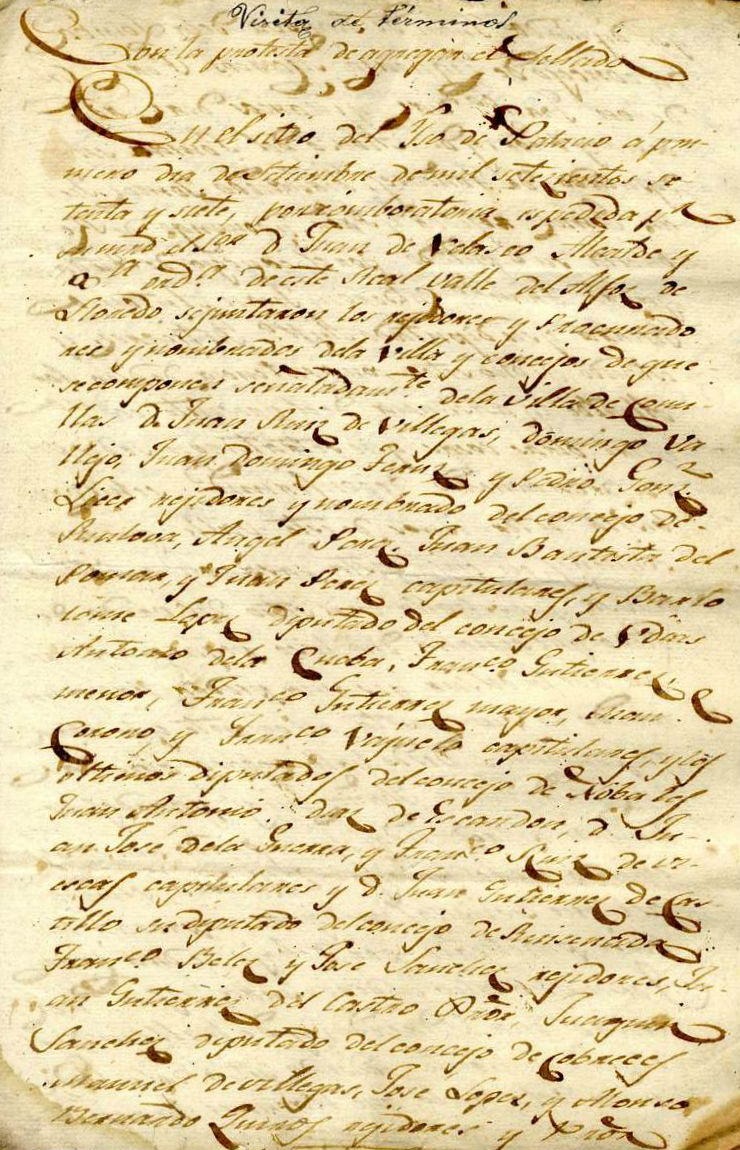 Visita de términos
Con la protesta de agregar el sellado
En el sitio del Pso de Palacio á pri-
mero dia de Setiembre de mil setezientos se-
tenta y siete, por combocatoria espedida pr
su mrd el sor d Juan de Velasco Alcalde y
ordo de este Real valle del Alfoz de
Lloredo sejuntaron los rejidores y Procurado
res y nombrados dela villa y concejos de que
secomponen señaladamte dela Villa de Comi-
llas d. Juan Ruiz de Villegas, domingo Va
llejo, Juan Domingo Fernz y Pedro Gonz
rejidores y nombrado del concejo de
Ruilova, Angel Perez, Juan Bautista del
Pomar, y Juan Perez capitulares, y Barto
lome Lopez diputado del concejo de Udias
Antonio dela Cueba, Franco Gutierrez
menor, Franco Gutierrez mayor, Juan
Corono, y Franco capitulares, y los
ultimos diputados del concejo de Noba les
Juan Antonio diaz de Escandon, d. Ju-
an José dela Guerra, y Franco Ruiz de vi-
escas capitulares y d. Juan Gutierrez de Cas-
tillo su diputado del concejo de Ruiseñada
Franco Belez y Jose Sanchez rejidores, Ju-
an Gutierrez del Castro Pror, Juaquin
Sanchez diputado del concejo de Cobreces
Manuel de villegas, Jose Lopez, y Alonso
Bernardo Quiros rejidores y Pror